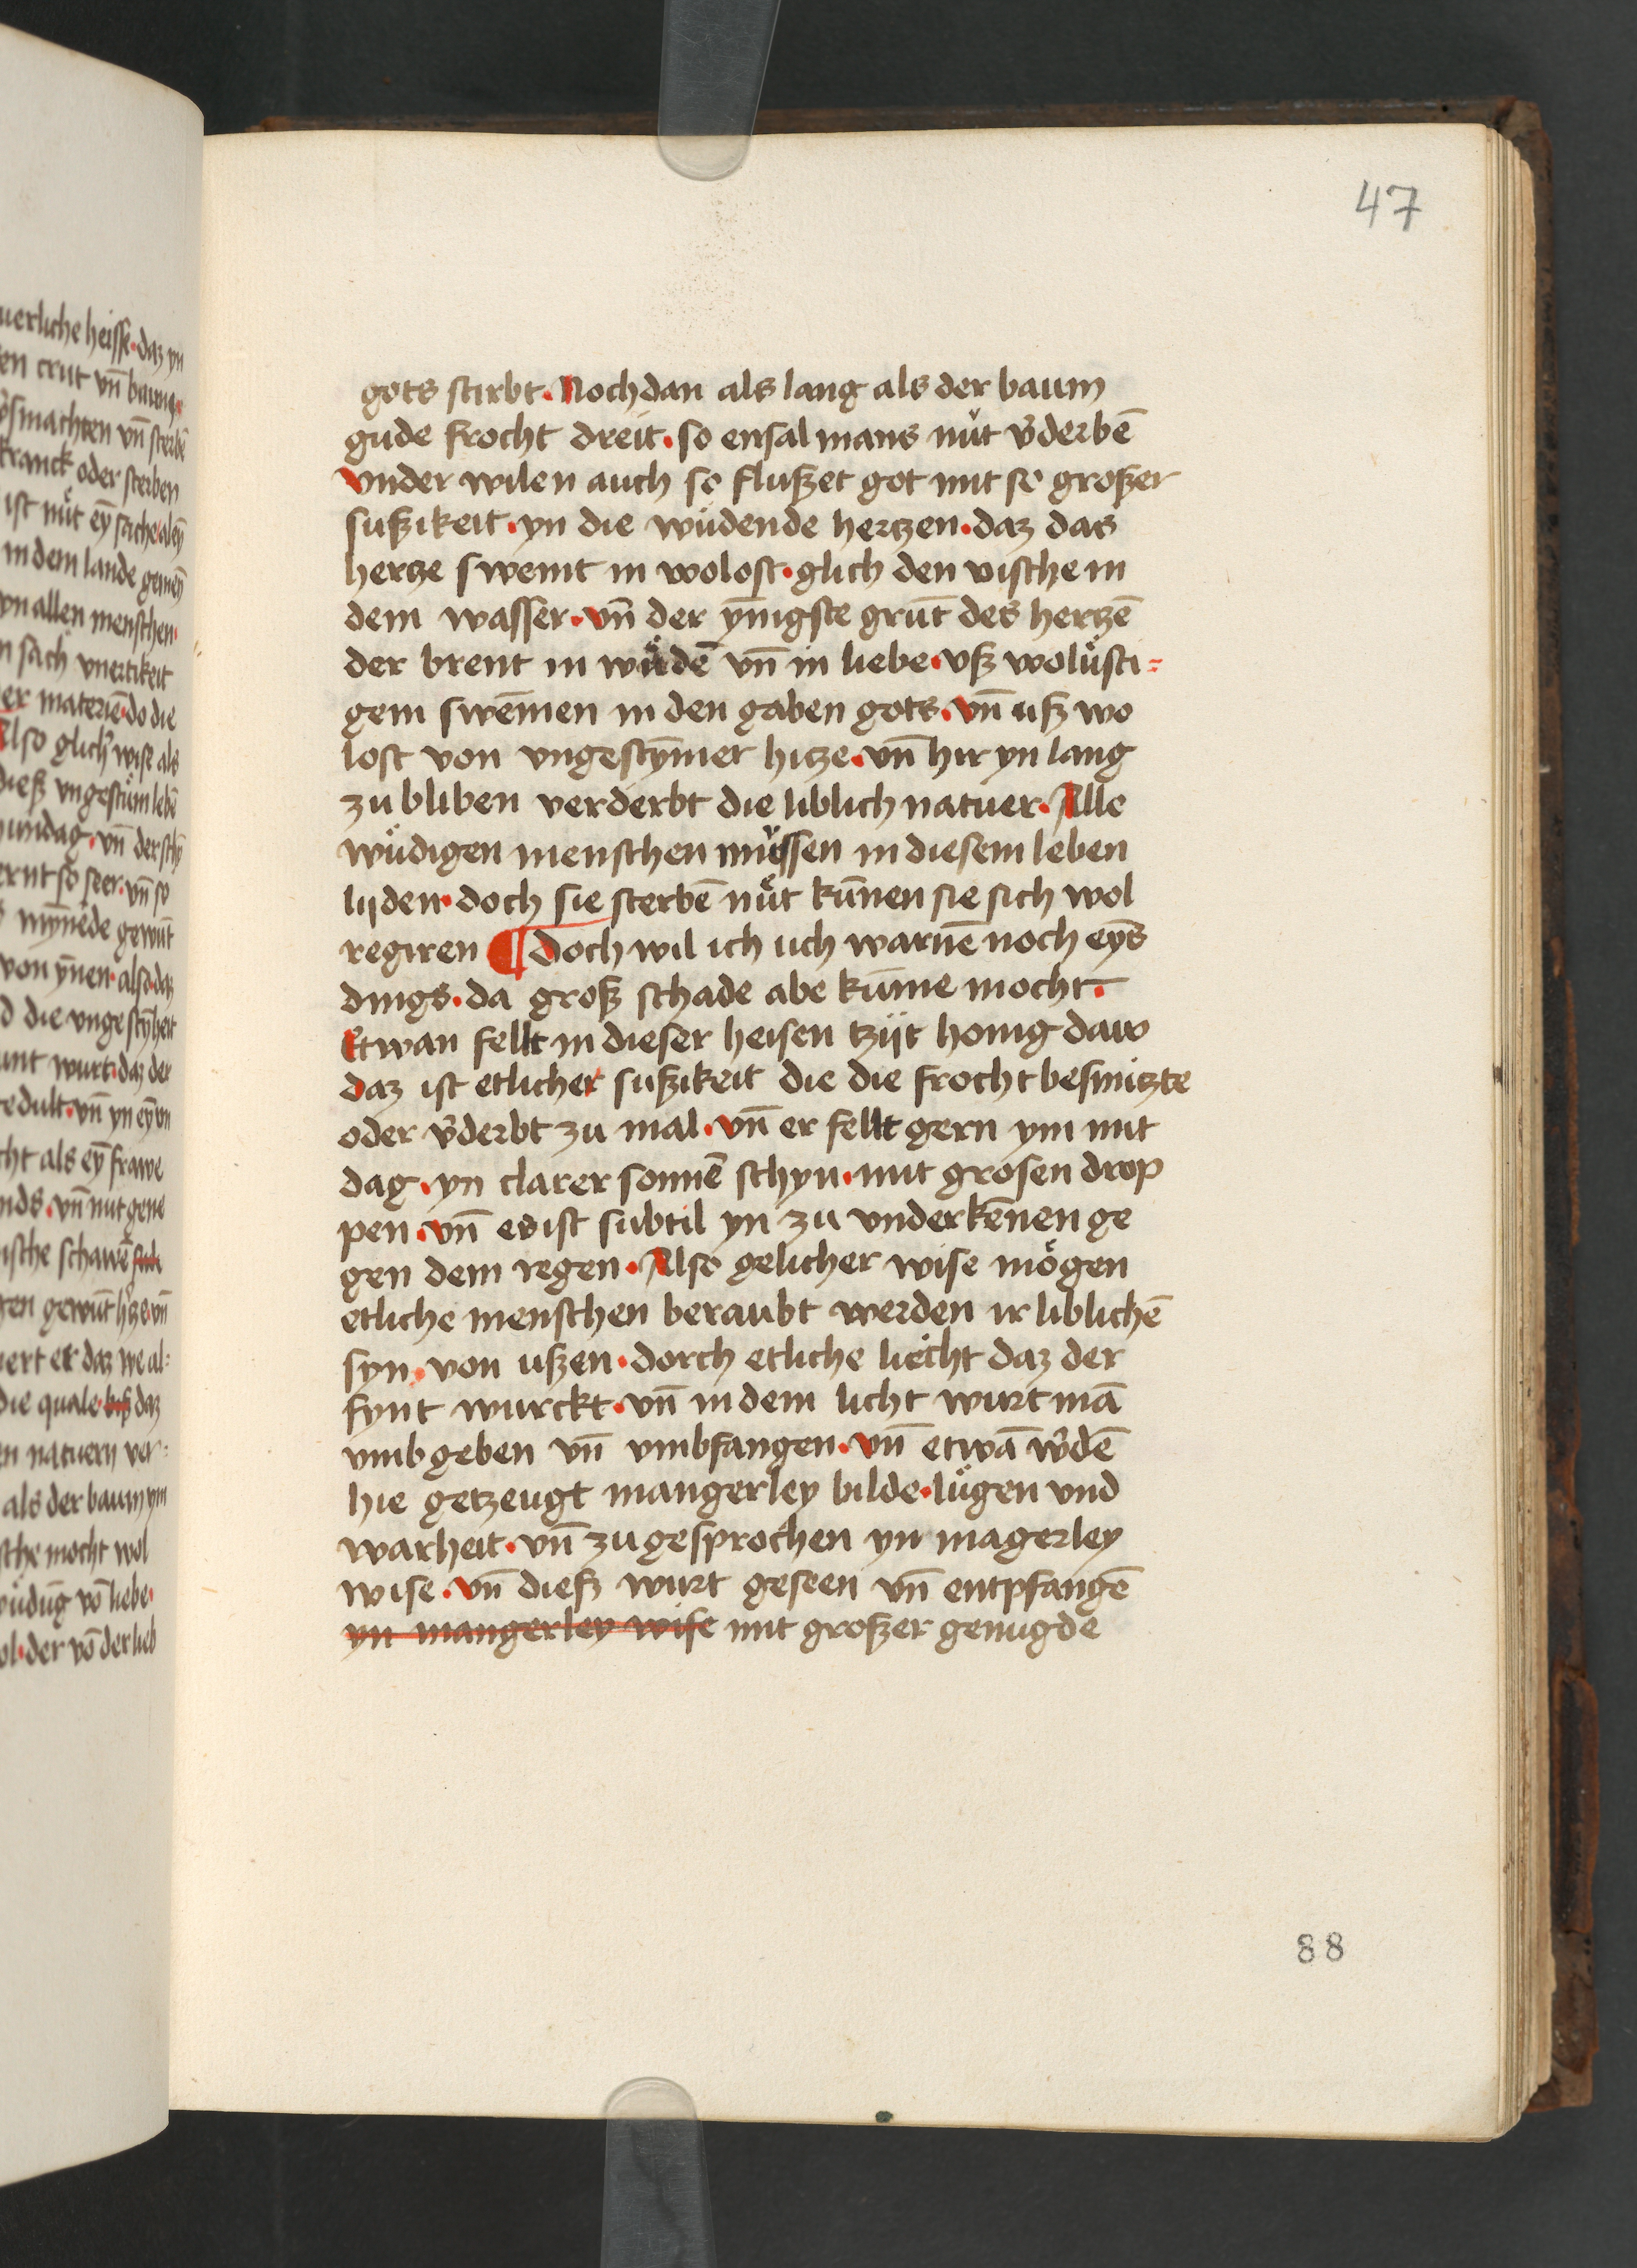 47
gots stirbt. Nochdan als lang als der baum
gude frocht dreit. so ensal mans nüt v̄derbē
vnder wilen auch so flußet got mit so großer
sußikeit. yn die wüdende hertzen. daz das
hertze swemt in wolost. glich den vische in
dem wasser. vn̄ der ȳnigste grūt des hertzē
der brent in wüdē vn̄ in liebe. vß wolüsti=
gem swēmen in den gaben gots. vn̄ uß wo
lost von vngestȳmer hitze. vn̄ hir yn lang
zu bliben verderbt die liblich natuer. Alle
wüdigen menschen müssen in diesem leben
lijden. doch sie sterbē nüt kūnen sie sich wol
regiren ¶ doch wil ich uch warnē noch eȳs
dings. da groß schade abe kūme mocht.
Etwan fellt in dieser heisen tzijt honig daw
daz ist etlicher sußikeit die die frocht besmitzte
oder v̄derbt zu mal. vn̄ er fellt gern ym mit
dag. yn clarer sonnē schyn. mit grosen drop
pen. vn̄ es ist subtil yn zu vnderkēnen ge
gen dem regen. Also gelicher wise mögen
etliche menschen beraubt werden ir liblichē
syn. von ußen. dorch etliche liecht daz der
fynt wurckt. vn̄ in dem licht wurt mā
vmb geben vn̄ vmbfangen. vn̄ etwā w̄dē
hie getzeugt mangerley bilde. lügen vnd
warheit. vn̄ zu gesprochen yn magerley
wise. vn̄ dieß wurt geseen vn̄ entpfangē
yn mangerley wise mit großer genugde
88